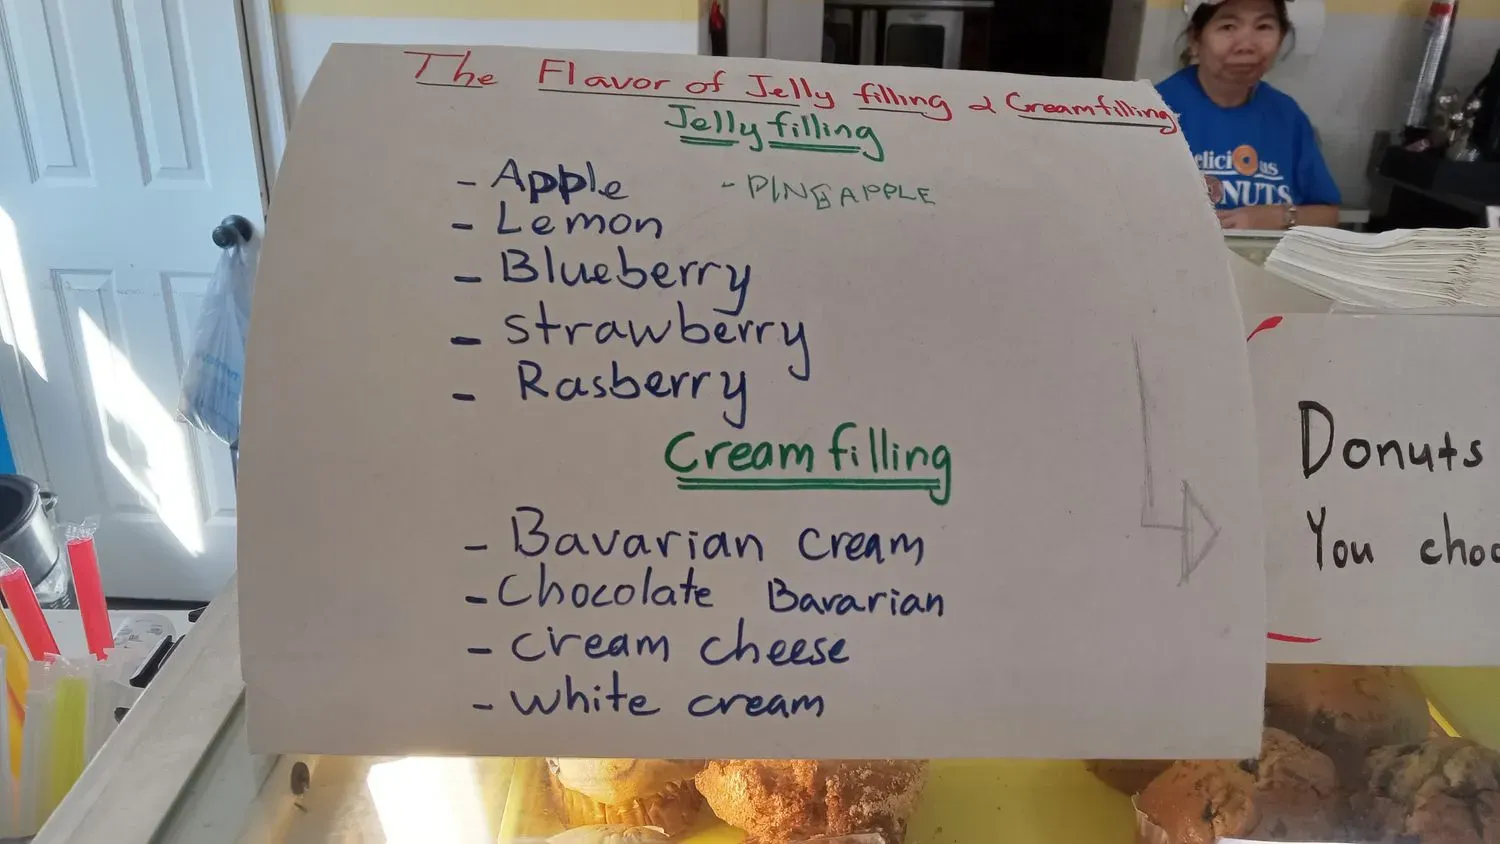 The Flavor of Jelly filling & Creamfilling
Jelly filling
- Apple
- PINEAPPLE
- Lemon
- Blueberry
- Strawberry
- Rasberry
Cream filling
- Bavarian cream
- Chocolate Bavarian
- cream cheese
- white cream
elicious
NUTS
Donuts
You choo